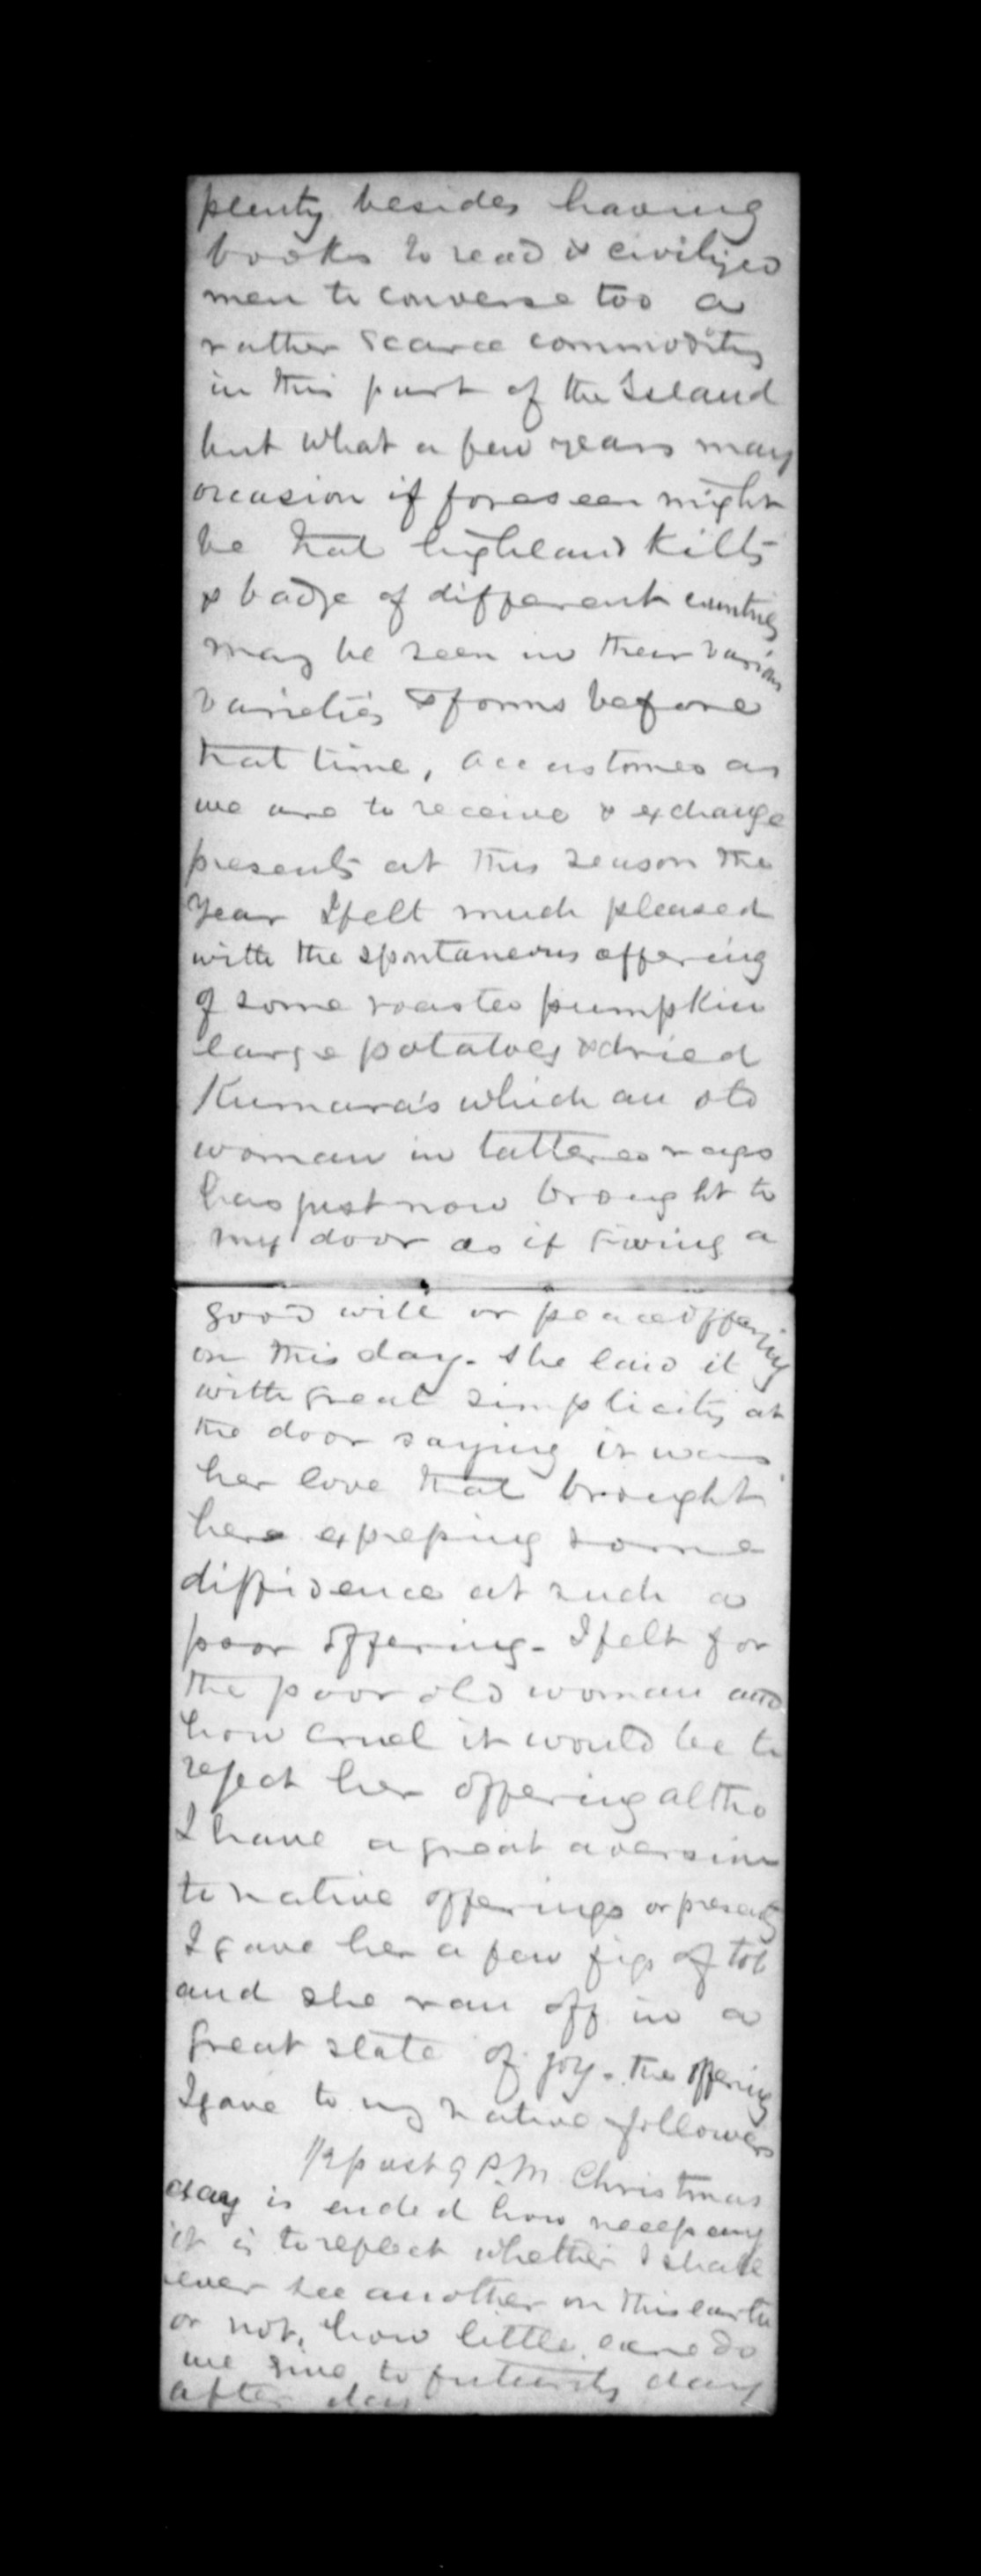 plenty besides having
books to read & civilized
men to converse too a
rather scarce commodity
in this part of the Island
but what a few years may
occasion if foreseen might
be that highland Kilts
& badge of different countries
may be seen in their various
varieties & forms before
that time, accustomed as
we are to receive & exchange
presents at this season the
year I felt much pleased
with the spontaneous offering
of some roasted pumpkin
large potatoes & dried
Kumara's which an old
woman in tattered rags
has just now brought to
my door as if giving a
good will or peace offering
on this day. She laid it
with great simplicity at
the door saying it was
her love that brought
here expressing some
diffidence at such a
poor offering - I felt for
the poor old woman and
how cruel it would be to
reject her offering altho
I have a great aversion
to native offerings or presents
I gave her a few figs of tob
and she ran off in a
great state of joy. the offering
I gave to my native followers
1/2 past 9 P.M. Christmas
day is ended how necessary
it is to reflect whether I shall
ever see another on this earth
or not, how little care do
we give to futurity day
after day